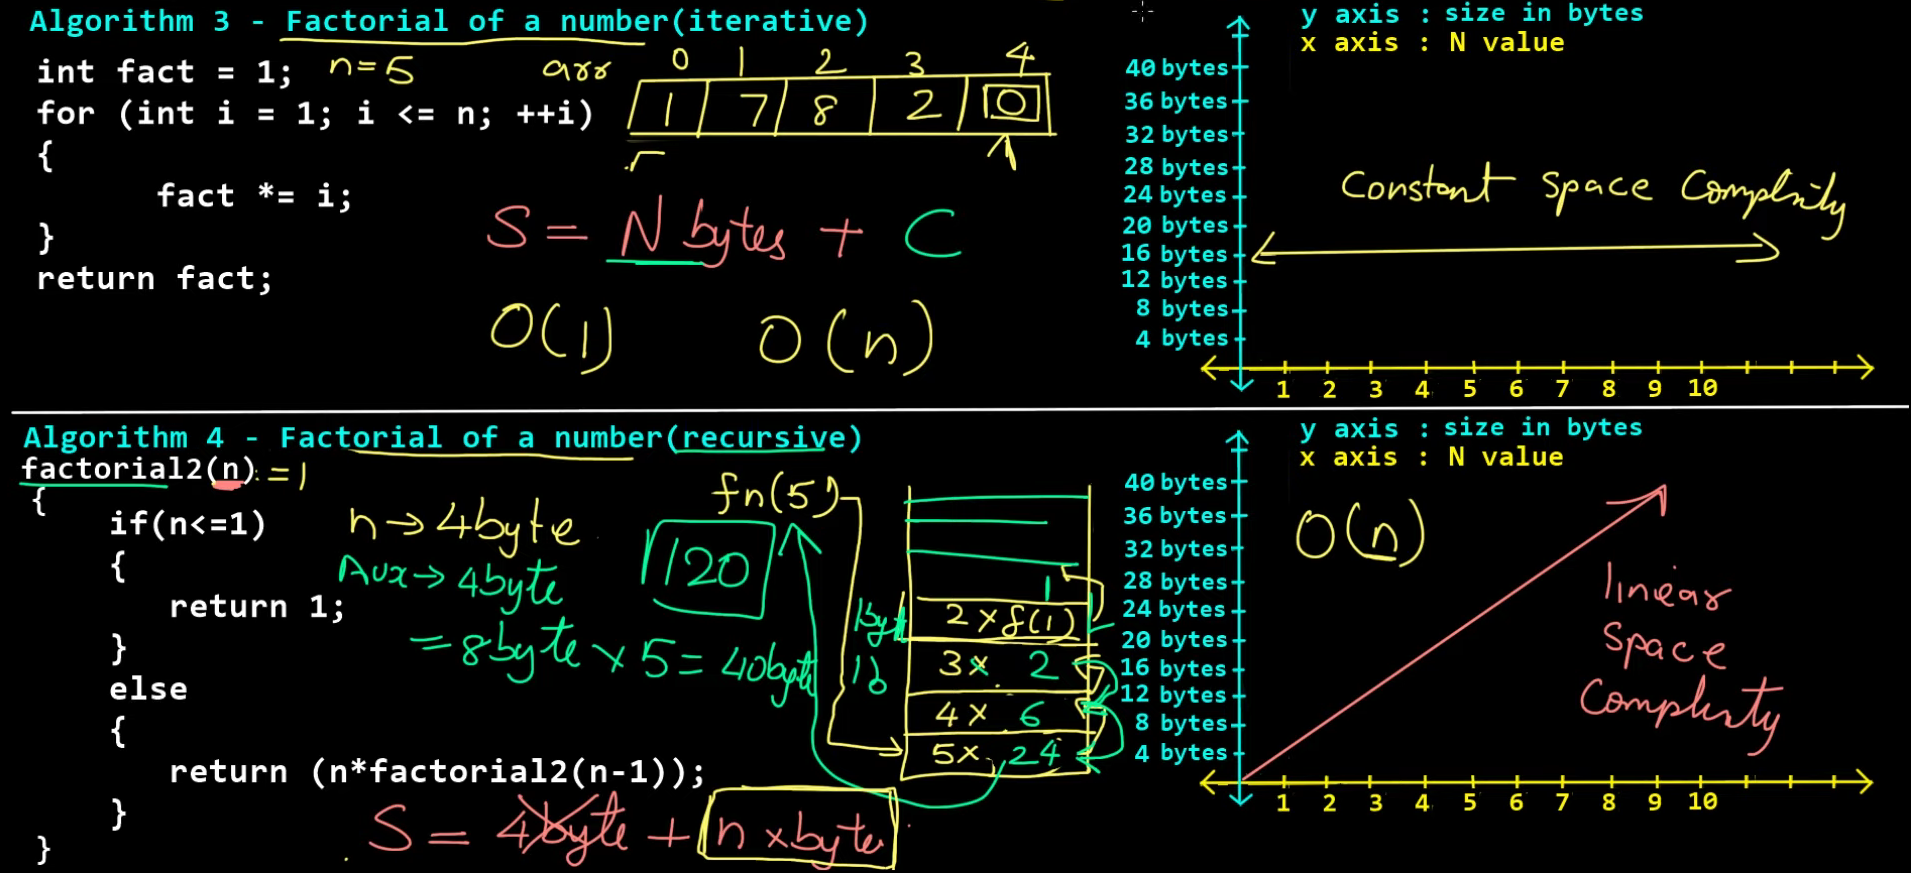 Algorithm 3 - Factorial of a number(iterative)
int fact = 1;
n=5
arr
0 1 2 3 4
1 7 8 2 0
for (int i = 1; i <= n; ++i)
{
fact *= i;
}
return fact;
S = N bytes + C
O(1) O(n)
y axis : size in bytes
x axis : N value
40 bytes
36 bytes
32 bytes
28 bytes
24 bytes
20 bytes
16 bytes
12 bytes
8 bytes
4 bytes
Constant Space Complxity
1 2 3 4 5 6 7 8 9 10
Algorithm 4 - Factorial of a number(recursive)
factorial2(n) =1
{
if(n<=1)
{
return 1;
}
else
{
return (n*factorial2(n-1));
}
}
n→4byte
Aux→4byte
=8byte x 5= 40byte
fn(5)
120
1
2 x f(1)
3x 2
4x 6
5x 24
S = 4byte + n xbyte
y axis : size in bytes
x axis : N value
40 bytes
36 bytes
32 bytes
28 bytes
24 bytes
20 bytes
16 bytes
12 bytes
8 bytes
4 bytes
O(n)
linear
Space
Complxity
1 2 3 4 5 6 7 8 9 10